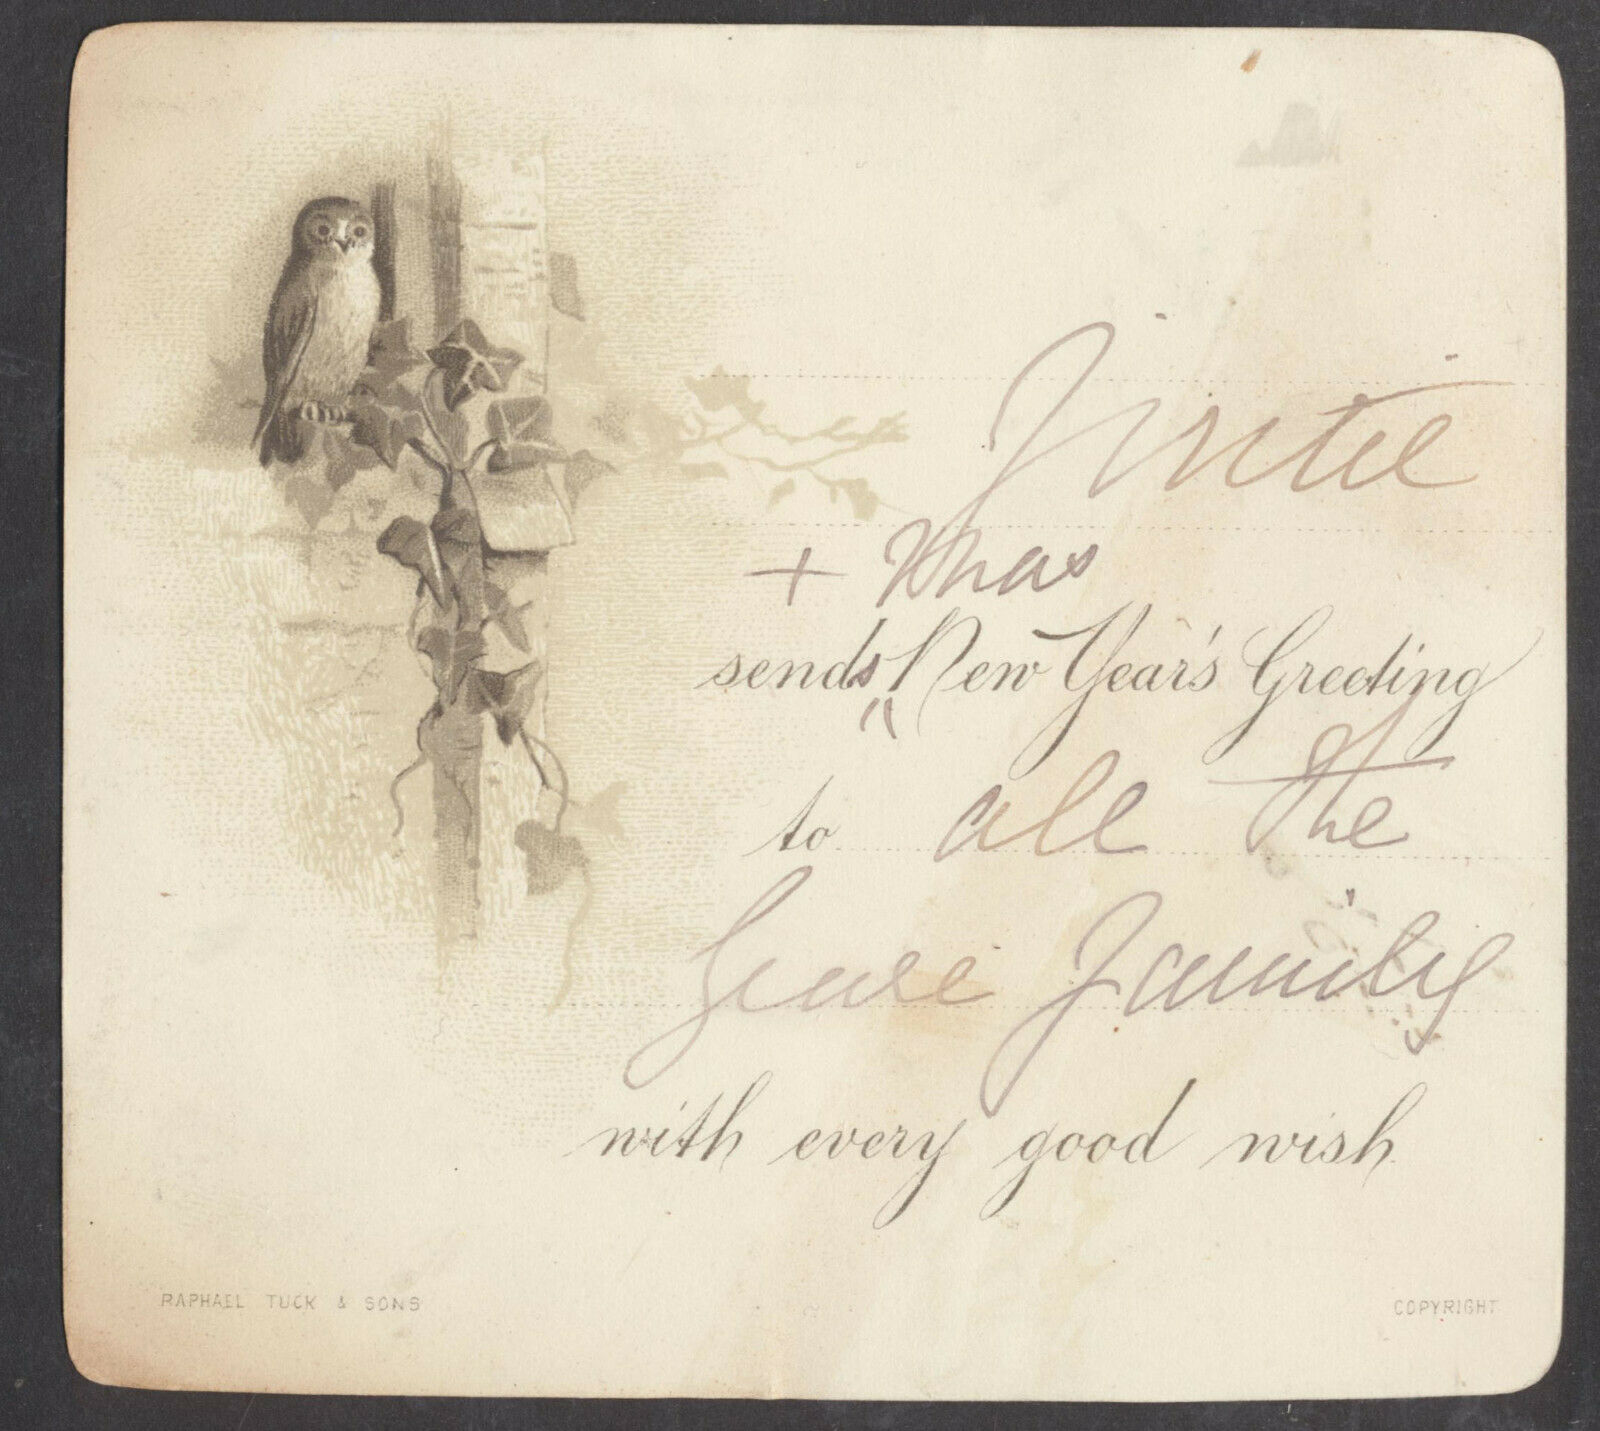 + Xmas
sends New Year's Greeting
to all the
Family
with every good wish
RAPHAEL TUCK & SONS
COPYRIGHT